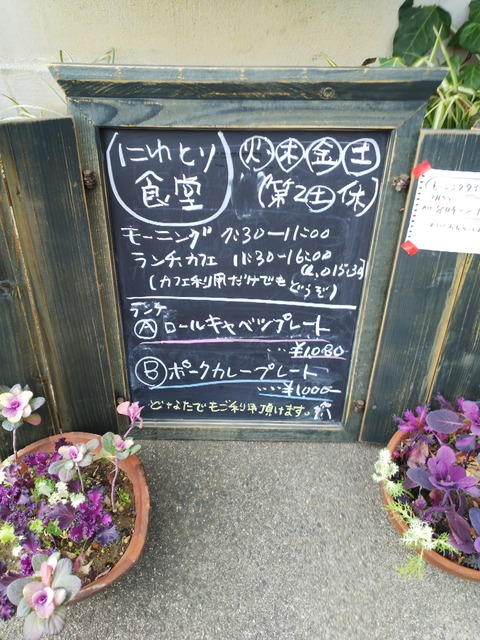 にわとり
食堂
火 木 金 土
(第2土休)
モーニング 7:30-11:00
ランチ、カフェ 11:30-16:00
(L.O 15:30)
(カフェ利用だけでも
どうぞ)
ランチ
Ⓐ ロールキャベツプレート
…¥1,080
Ⓑ ポークカレープレート
…¥1000-
どなたでもご利用頂けます。